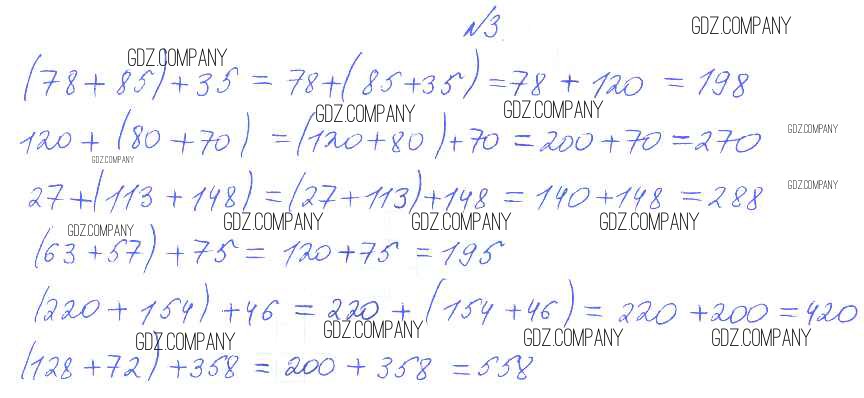 №3.
GDZ.COMPANY
GDZ.COMPANY
(78 + 85) + 35 = 78 + (85 + 35) = 78 + 120 = 198
GDZ.COMPANY GDZ.COMPANY
120 + (80 + 70) = (120 + 80) + 70 = 200 + 70 = 270
GDZ.COMPANY
GDZ.COMPANY
27 + (113 + 148) = (27 + 113) + 148 = 140 + 148 = 288
GDZ.COMPANY
GDZ.COMPANY GDZ.COMPANY GDZ.COMPANY GDZ.COMPANY
(63 + 57) + 75 = 120 + 75 = 195
(220 + 154) + 46 = 220 + (154 + 46) = 220 + 200 = 420
GDZ.COMPANY GDZ.COMPANY GDZ.COMPANY GDZ.COMPANY
(128 + 72) + 358 = 200 + 358 = 558